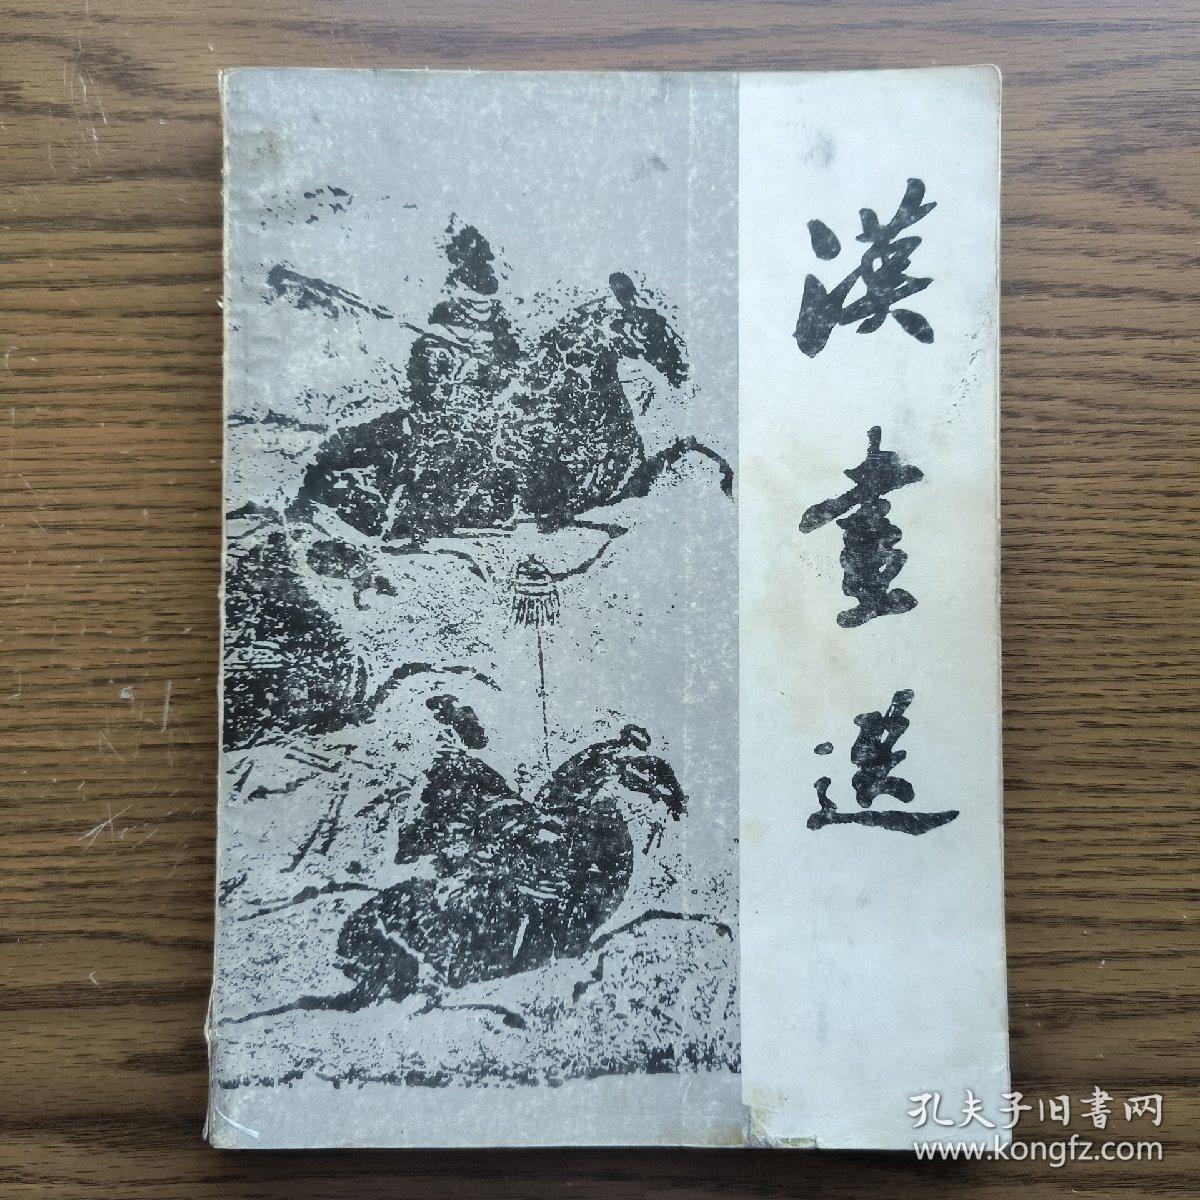 漢畫選
孔夫子旧書网
www.kongfz.com